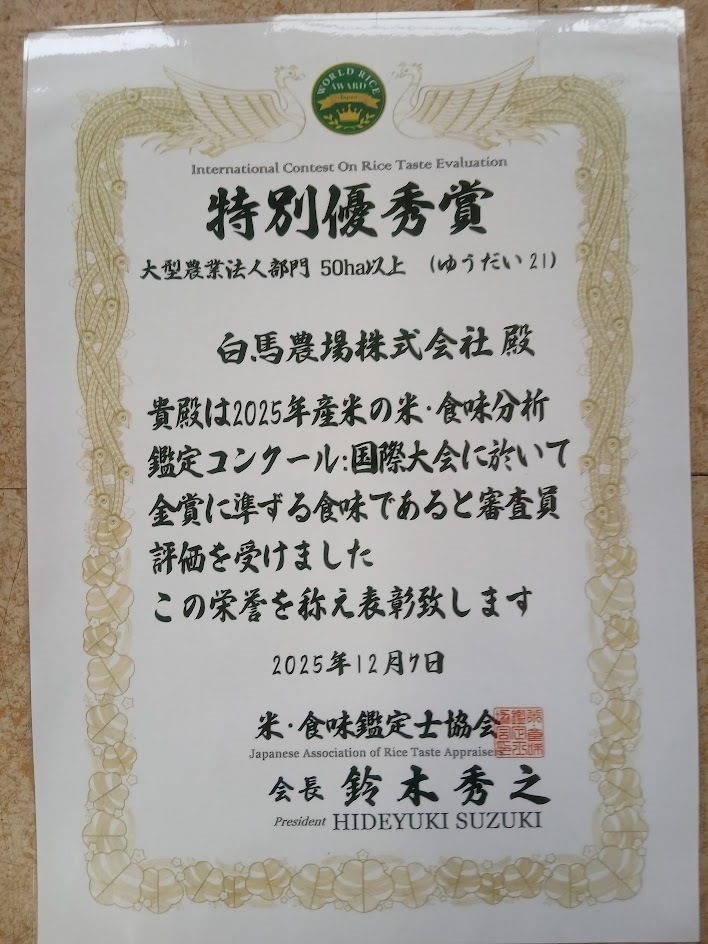 WORLD RICE
AWARD
Japan
International Contest On Rice Taste Evaluation
特別優秀賞
大型農業法人部門 50ha以上 (ゆうだい21)
白馬農場株式会社 殿
貴殿は2025年産米の米・食味分析
鑑定コンクール:国際大会に於いて
金賞に準ずる食味であると審査員
評価を受けました
この栄誉を称え表彰致します
2025年12月7日
米・食味鑑定士協会
Japanese Association of Rice Taste Appraisers
会長 鈴木秀之
President HIDEYUKI SUZUKI